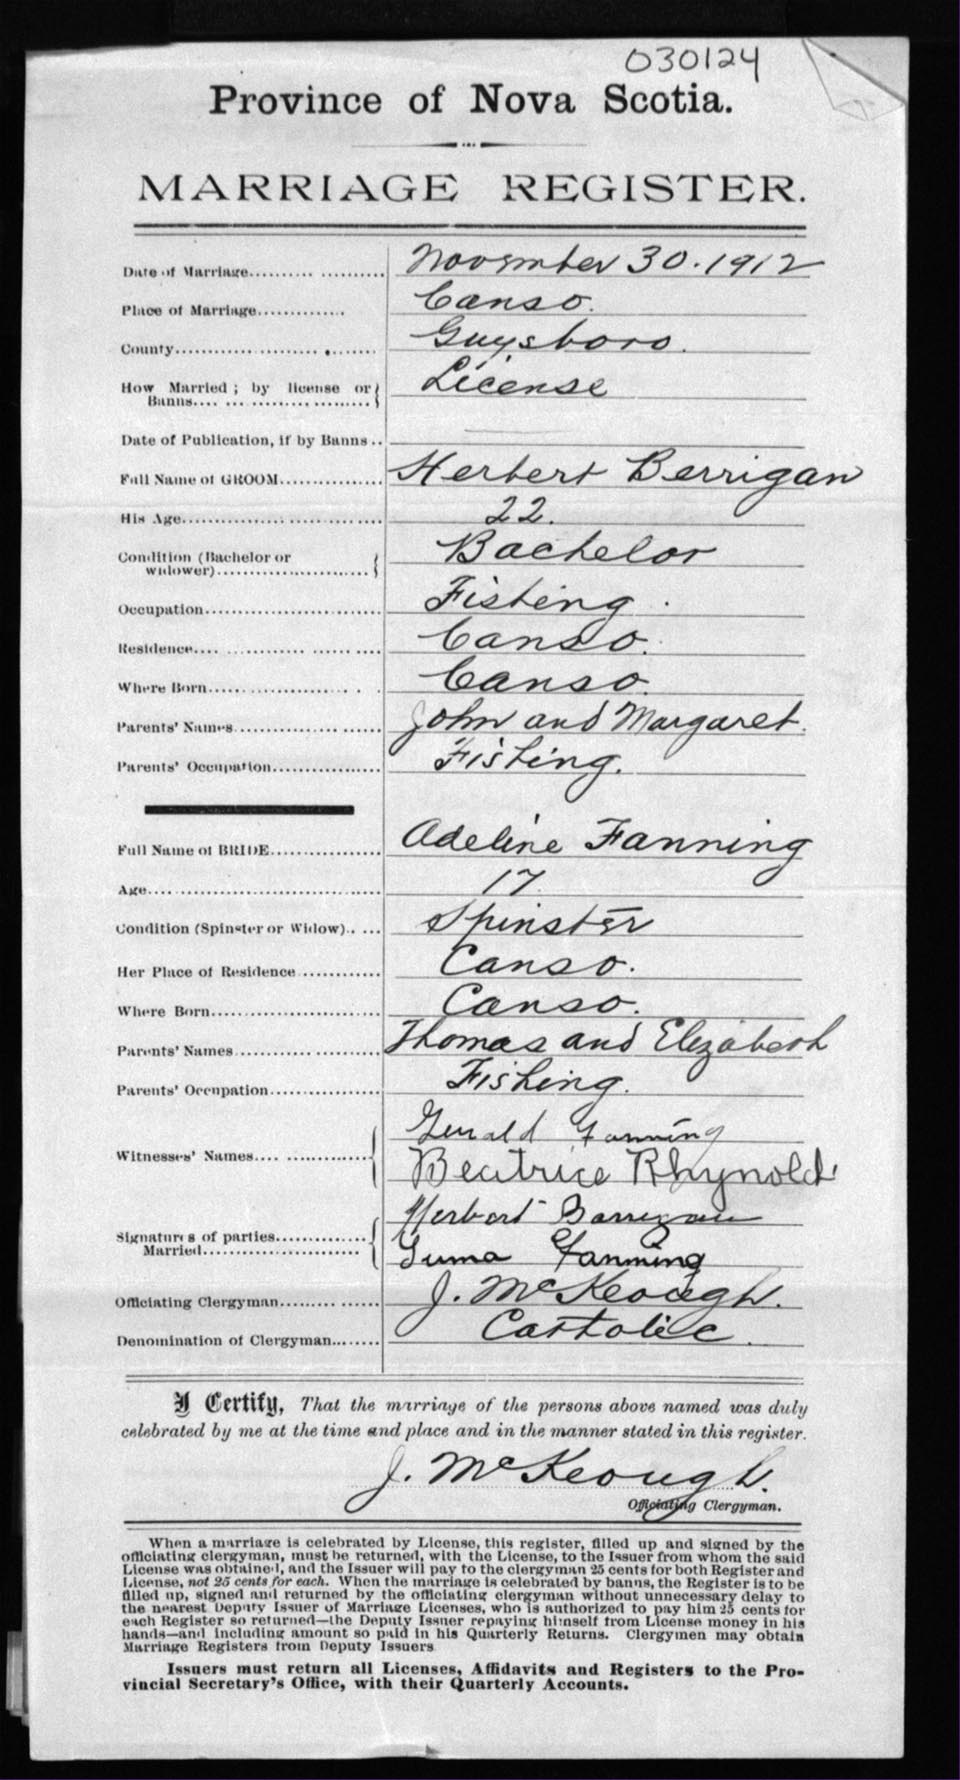 030124
Province of Nova Scotia.
MARRIAGE REGISTER.
Date of Marriage.......... November 30. 1912
Place of Marriage.......... Canso.
County.......... Guysboro.
How Married ; by license or
Banns.......... License
Date of Publication, if by Banns ..
Full Name of GROOM.......... Herbert Berrigan
His Age.......... 22.
Condition (Bachelor or
widower).......... Bachelor
Occupation.......... Fishing.
Residence.......... Canso.
Where Born.......... Canso.
Parents' Names.......... John and Margaret.
Parents' Occupation.......... Fishing.
Full Name of BRIDE.......... Adeline Fanning
Age.......... 17.
Condition (Spinster or Widow).......... Spinster
Her Place of Residence .......... Canso.
Where Born.......... Canso.
Parents' Names.......... Thomas and Elizabeth
Parents' Occupation.......... Fishing.
Gerald Fanning
Witnesses' Names.......... Beatrice Rhynold
Herbert
Signatures of parties..........
Married.......... Fanning
Officiating Clergyman.......... J. McKeough.
Denomination of Clergyman........ Cartolic.
I Certify, That the marriage of the persons above named was duly
celebrated by me at the time and place and in the manner stated in this register.
J. McKeough.
Officiating Clergyman.
When a marriage is celebrated by License, this register, filled up and signed by the
officiating clergyman, must be returned, with the License, to the Issuer from whom the said
License was obtained, and the Issuer will pay to the clergyman 25 cents for both Register and
License, not 25 cents for each. When the marriage is celebrated by banns, the Register is to be
filled up, signed and returned by the officiating clergyman without unnecessary delay to
the nearest Deputy Issuer of Marriage Licenses, who is authorized to pay him 25 cents for
each Register so returned—the Deputy Issuer repaying himself from License money in his
hands—and including amount so paid in his Quarterly Returns. Clergymen may obtain
Marriage Registers from Deputy Issuers
Issuers must return all Licenses, Affidavits and Registers to the Pro-
vincial Secretary's Office, with their Quarterly Accounts.